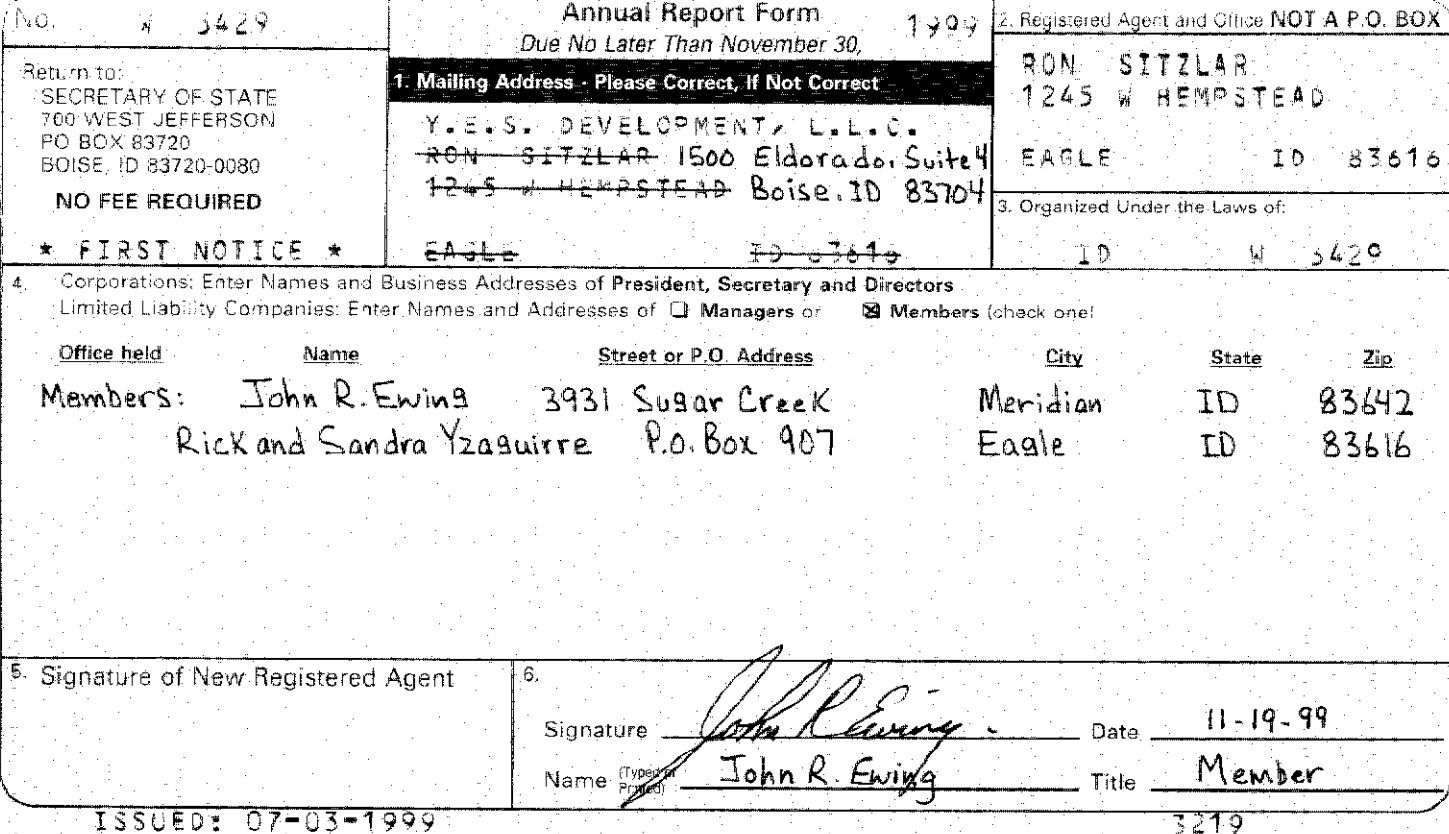 No. W 3429
Annual Report Form 1999
Due No Later Than November 30,
Return to:
SECRETARY OF STATE
700 WEST JEFFERSON
PO BOX 83720
BOISE, ID 83720-0080
NO FEE REQUIRED
* FIRST NOTICE *
1. Mailing Address - Please Correct, If Not Correct
Y.E.S. DEVELOPMENT, L.L.C.
RON SITZLAR 1500 Eldorado, Suite 4
1245 W HEMPSTEAD Boise, ID 83704
EAGLE ID 83616
2. Registered Agent and Office NOT A P.O. BOX
RON SITZLAR
1245 W HEMPSTEAD
EAGLE ID 83616
3. Organized Under the Laws of:
ID W 3429
4. Corporations: Enter Names and Business Addresses of President, Secretary and Directors
Limited Liability Companies: Enter Names and Addresses of ☐ Managers or ☒ Members (check one)
Office held Name Street or P.O. Address City State Zip
Members: John R. Ewing 3931 Sugar Creek Meridian ID 83642
Rick and Sandra Yzaguirre P.O. Box 907 Eagle ID 83616
5. Signature of New Registered Agent
6.
Signature John R Ewing Date 11-19-99
Name (Typed or Printed) John R. Ewing Title Member
ISSUED: 07-03-1999 3219